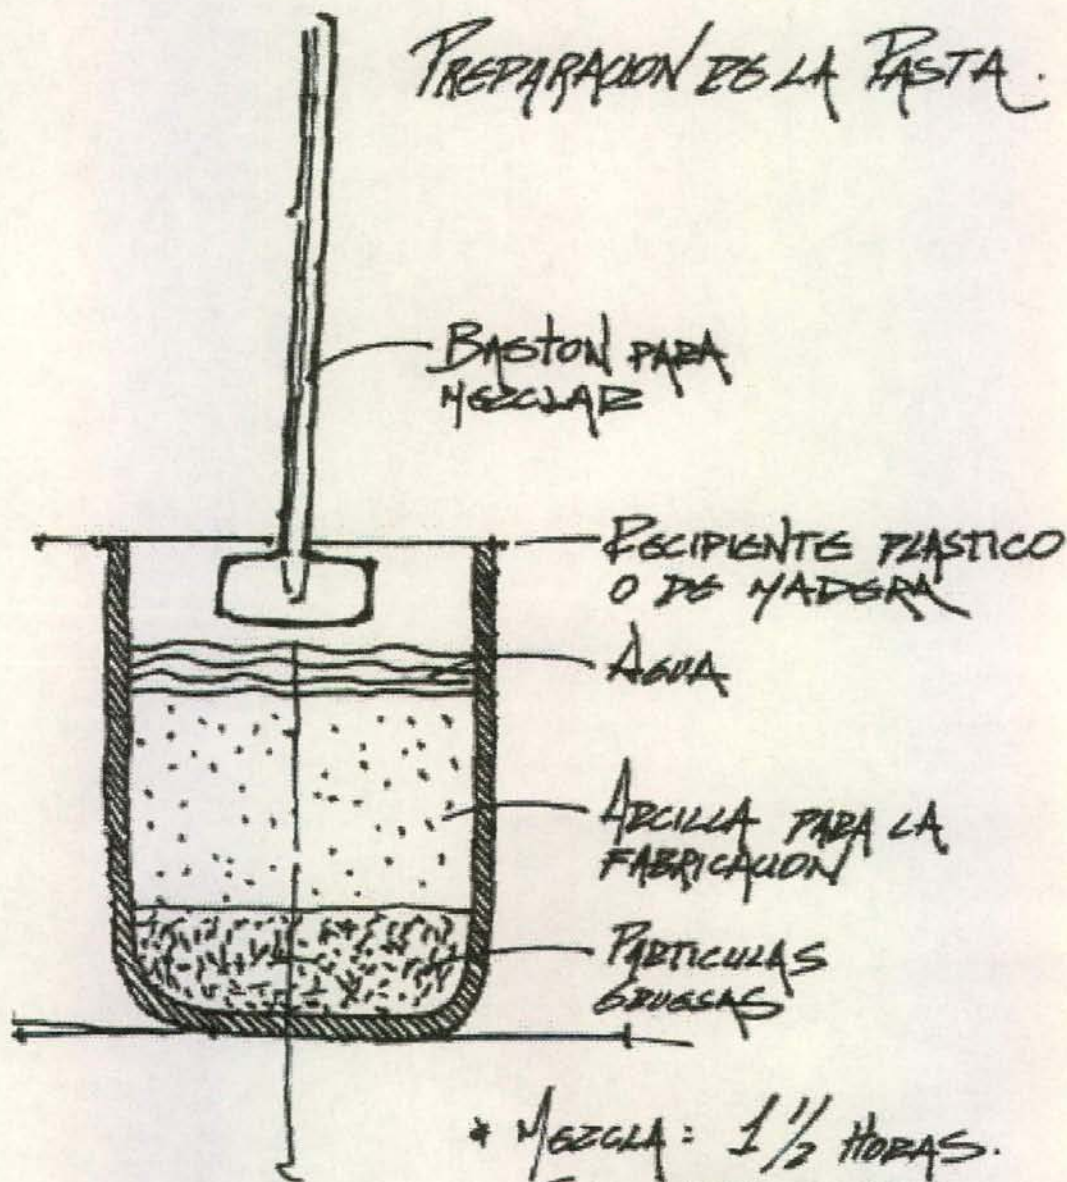 PREPARACION DE LA PASTA.
BASTON PARA
MEZCLAR
RECIPIENTE PLASTICO
O DE MADERA
AGUA
ARCILLA PARA LA
FABRICACION
PARTICULAS
GRUESAS
* MEZCLA: 1 1/2 HORAS.